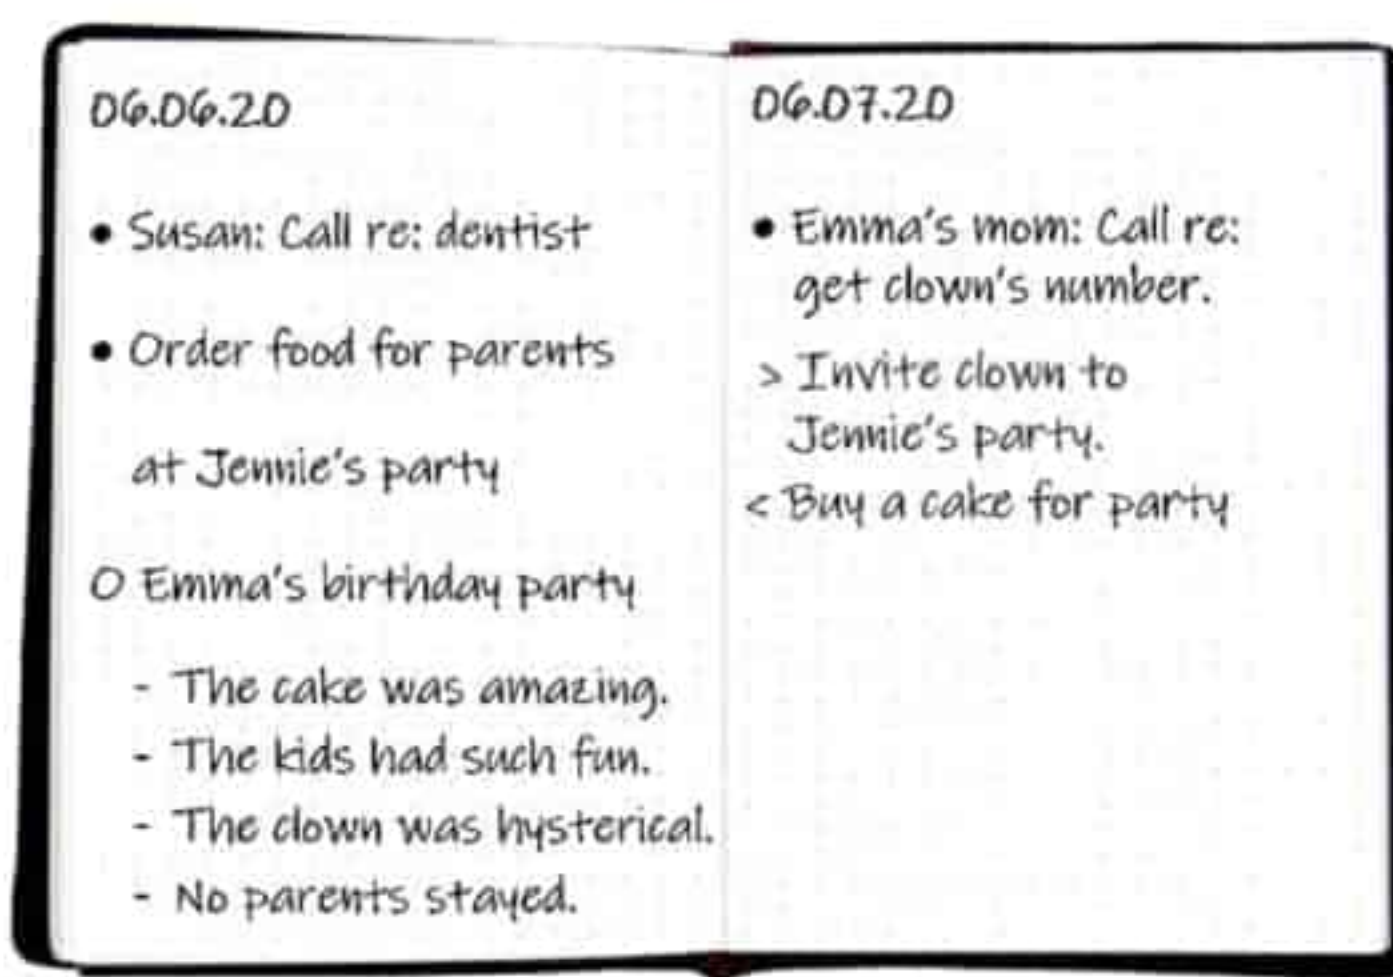 06.06.20
• Susan: Call re: dentist
• Order food for parents
at Jennie's party
O Emma's birthday party
- The cake was amazing.
- The kids had such fun.
- The clown was hysterical.
- No parents stayed.
06.07.20
• Emma's mom: Call re:
get clown's number.
> Invite clown to
Jennie's party.
< Buy a cake for party